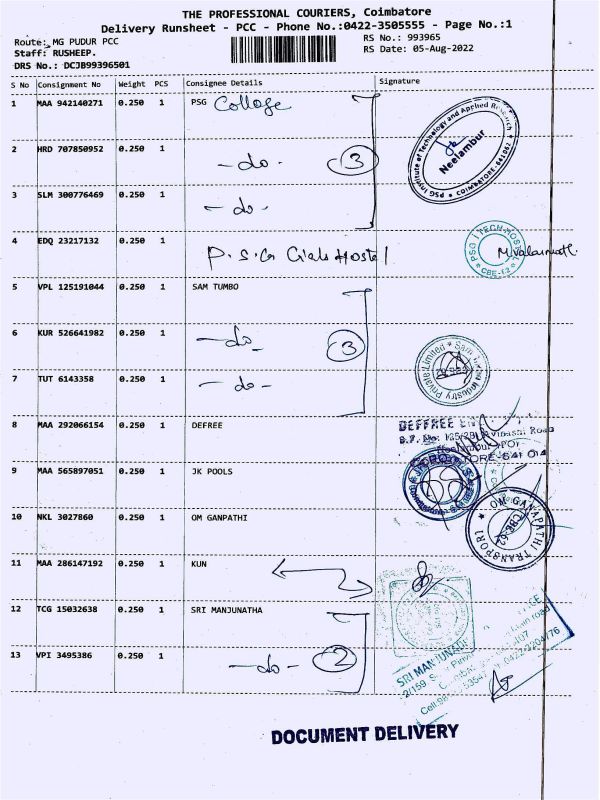 THE PROFESSIONAL COURIERS, Coimbatore
Delivery Runsheet - PCC - Phone No.:0422-3505555 - Page No.:1
Route: MG PUDUR PCC
RS No.: 993965
Staff: RUSHEEP.
RS Date: 05-Aug-2022
DRS No.: DCJB99396501
S No Consignment No Weight PCS Consignee Details Signature
1 MAA 942140271 0.250 1 PSG College
2 HRD 707850952 0.250 1 -do- 3
3 SLM 300776469 0.250 1 -do-
4 EDQ 23217132 0.250 1 P.S.G Girls Hostel
5 VPL 125191044 0.250 1 SAM TUMBO
6 KUR 526641982 0.250 1 -do- 3
7 TUT 6143358 0.250 1 -do-
8 MAA 292066154 0.250 1 DEFREE
9 MAA 565897051 0.250 1 JK POOLS
10 NKL 3027860 0.250 1 OM GANPATHI
11 MAA 286147192 0.250 1 KUN
12 TCG 15032638 0.250 1 SRI MANJUNATHA
13 VPI 3495386 0.250 1 -do- 2
PSG Institute of Technology and Applied Research
Neelambur
COIMBATORE-641062
PSG iTECH-HOSTEL
CBE-62
Private Limited
DEFFREE
Avinashi Road
OM GANAPATHI TRANSPORT
CBE-62
SRI MANJUNATHA
DOCUMENT DELIVERY